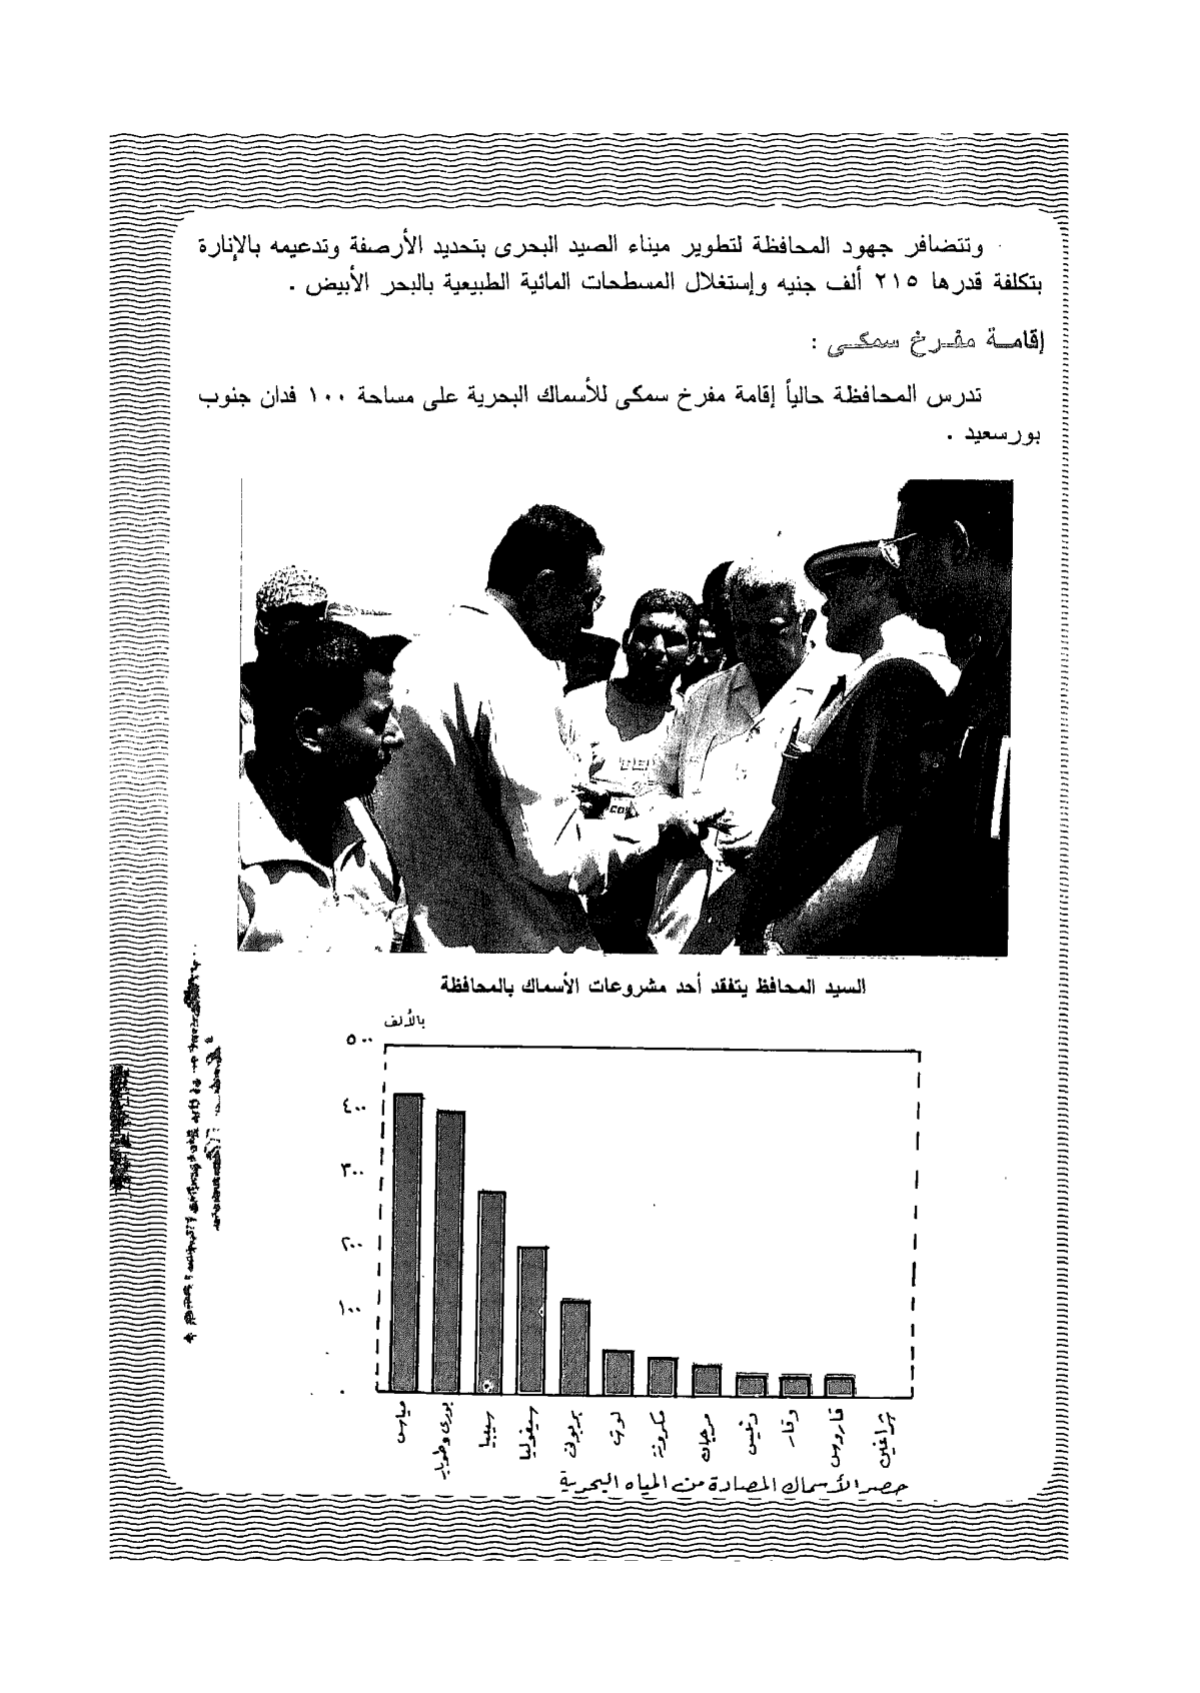 وتتضافر جهود المحافظة لتطوير ميناء الصيد البحرى بتحديد الأرصفة وتدعيمه بالإنارة
بتكلفة قدرها ٢١٥ ألف جنيه وإستغلال المسطحات المائية الطبيعية بالبحر الأبيض .
إقامة مفرخ سمكى :
تدرس المحافظة حالياً إقامة مفرخ سمكى للأسماك البحرية على مساحة ١٠٠ فدان جنوب
بورسعيد .
السيد المحافظ يتفقد أحد مشروعات الأسماك بالمحافظة
بالألف
٥٠٠
٤٠٠
٣٠٠
٢٠٠
١٠٠
٠
مياس
بورى وطوبار
سيبيا
سيفوليا
بربونى
لوت
مكرونة
مرجان
دنيس
وقار
قاروص
شراغيش
حصر الأسماك المصادة من المياه البحرية